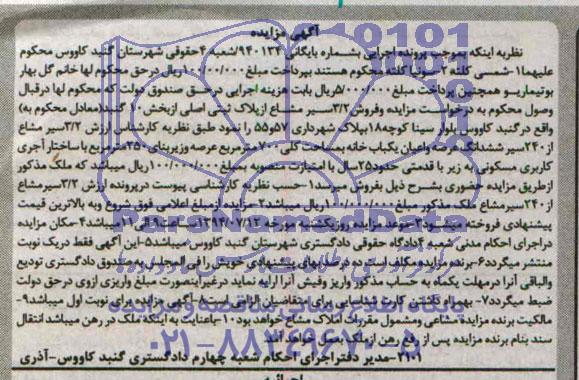 آگهی مزایده
نظر به اینکه بموجب پرونده اجرایی بشماره بایگانی ۹۴۰۱۳۴/شعبه ۴حقوقی شهرستان گنبد کاووس محکوم
علیهما۱-شمسی کلته ۲-سونیا کلته محکوم هستند بپرداخت مبلغ ۱۰۰/۰۰۰/۰۰۰ریال در حق محکوم لها خانم گل بهار
بوتیمار و همچنین پرداخت مبلغ ۵/۰۰۰/۰۰۰ریال بابت هزینه اجرایی در حق صندوق دولت که محکوم لها در قبال
وصول محکوم به درخواست مزایده وفروش۳/۲سیر مشاع از پلاک ثبتی اصلی ازبخش۱۰ گنبد(معادل محکوم به)
واقع در گنبد کاووس بلوار سینا کوچه۱۸پلاک شهرداری ۵۷و۵۵ را نمود طبق نظریه کارشناس ارزش ۳/۲سیر مشاع
از۲۴۰سیر ششدانگ عرصه واعیان یکباب خانه بمساحت کلی ۷۰۰مترمربع عرصه وزیربنای ۲۵۰مترمربع با ساختار آجری
کاربری مسکونی به زیر با قدمتی حدود۲۵سال با امتیازت منصوبه بمبلغ ۱۰۰/۰۰۰/۰۰۰ریال میباشد که ملک مذکور
ازطریق مزایده حضوری بشرح ذیل بفروش میرسد۱-حسب نظریه کارشناسی پیوست درپرونده ارزش ۳/۲سیرمشاع
از۲۴۰سیرمشاع ملک مذکور مبلغ ۱۰۰/۰۰۰/۰۰۰ریال میباشد۲-مزایده از مبلغ اعلامی فوق شروع وبه بالاترین قیمت
پیشنهادی فروخته میشود۳-موعد مزایده روزیکشنبه مورخه ۱۳۹۴/۰۷/۱۲ساعت۹الی۱۱میباشد۴-مکان مزایده
دراجرای احکام مدنی شعبه ۴دادگاه حقوقی دادگستری شهرستان گنبد کاووس میباشد۵-این آگهی فقط دریک نوبت
منتشر میگردد۶-برنده مزایده مکلف است ده درصد بهای پیشنهادی خویش را فی المجلس به صندوق دادگستری تودیع
والباقی آنرا درمهلت یکماه به حساب مذکور واریز وفیش آنرا ارایه نماید در غیراینصورت مبلغ واریزی ازوی درحق دولت
ضبط میگردد۷-بهمراه داشتن کارت شناسایی برای متقاضیان الزامی است۸-آگهی مزایده برای نوبت اول میباشد۹-
مالکیت برنده مزایده مشاعی ومشمول مقررات املاک مشاع خواهد بود۱۰-باعنایت به اینکه ملک در رهن میباشد انتقال
سند بنام برنده مزایده پس از رفع رهن ازملک بعمل خواهد آمد
۳۱۰۱-مدیر دفتراجرای احکام شعبه چهارم دادگستری گنبد کاووس-آذری
ParsNamadData
پایگاه اطلاع رسانی مناقصه و مزایده
۰۲۱-۸۸۳۴۹۶۷۰-۵